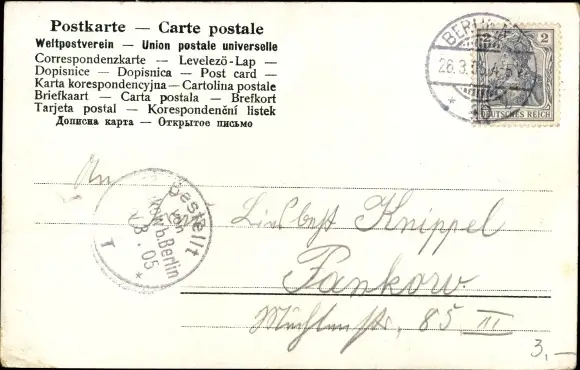 Postkarte — Carte postale
Weltpostverein — Union postale universelle
Correspondenzkarte — Levelezö-Lap —
Dopisnice — Dopisnica — Post card —
Karta korespondencyjna — Cartolina postale
Briefkaart — Carta postala — Brefkort
Tarjeta postal — Korespondenční listek
Дописна карта — Открытое письмо
BERLIN
26.3.
2
DEUTSCHES REICH
An
Knippel
Bestellt
b. Berlin
3.05
T
Pankow
85 III
3,-